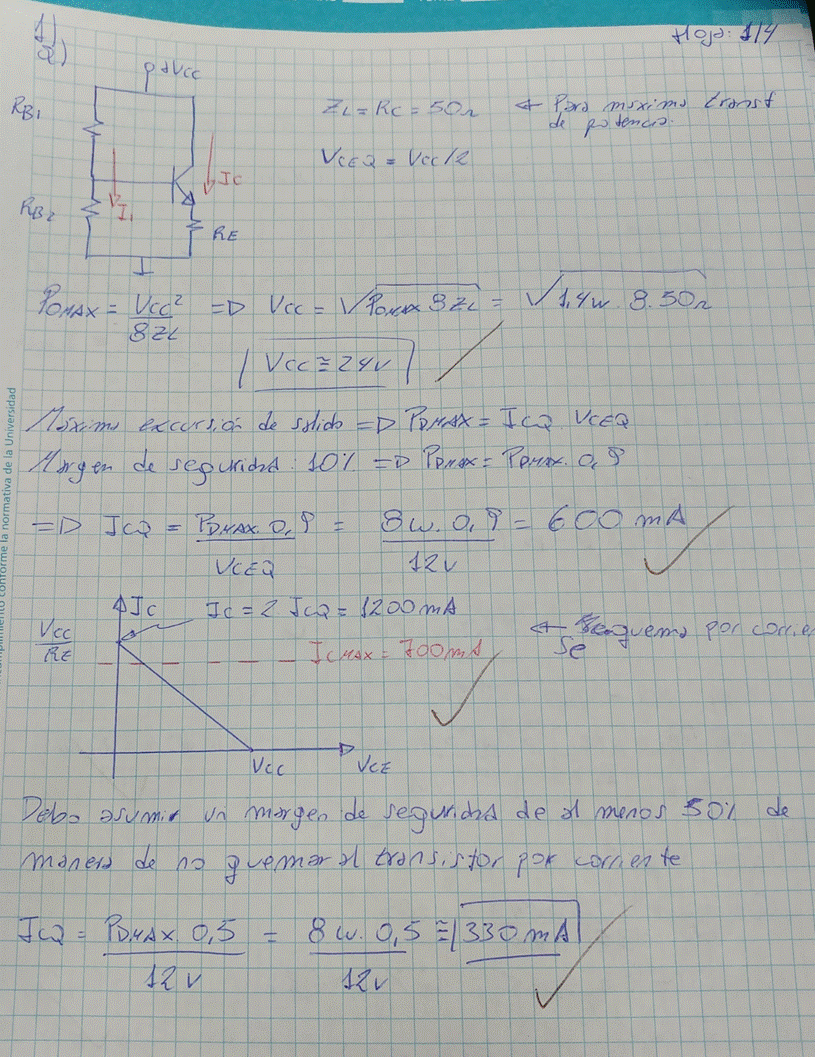 Hoja: 1/4
1)
a)
+Vcc
RB1
ZL = RC = 50Ω ← Para máxima transf
de potencia.
VCEQ = Vcc/2
IC
RB2
I1
RE
POMAX = Vcc² / 8ZL => Vcc = √POMAX 8ZL = √1,4W. 8. 50Ω
Vcc ≅ 24V
Máxima excursión de salida => PDMAX = ICQ. VCEQ
Margen de seguridad: 10% => PDMAX = PDMAX. 0,9
=> ICQ = PDMAX. 0,9 / VCEQ = 8W. 0,9 / 12V = 600 mA
IC
IC = 2 ICQ = 1200mA
Vcc / RE
ICMAX = 700mA
← Se quema por corrie
Se
Vcc
VCE
Debo asumir un margen de seguridad de al menos 50% de
manera de no quemar al transistor por corriente
ICQ = PDMAX. 0,5 / 12V = 8W. 0,5 / 12V ≅ 330mA
cumplimiento conforme la normativa de la Universidad